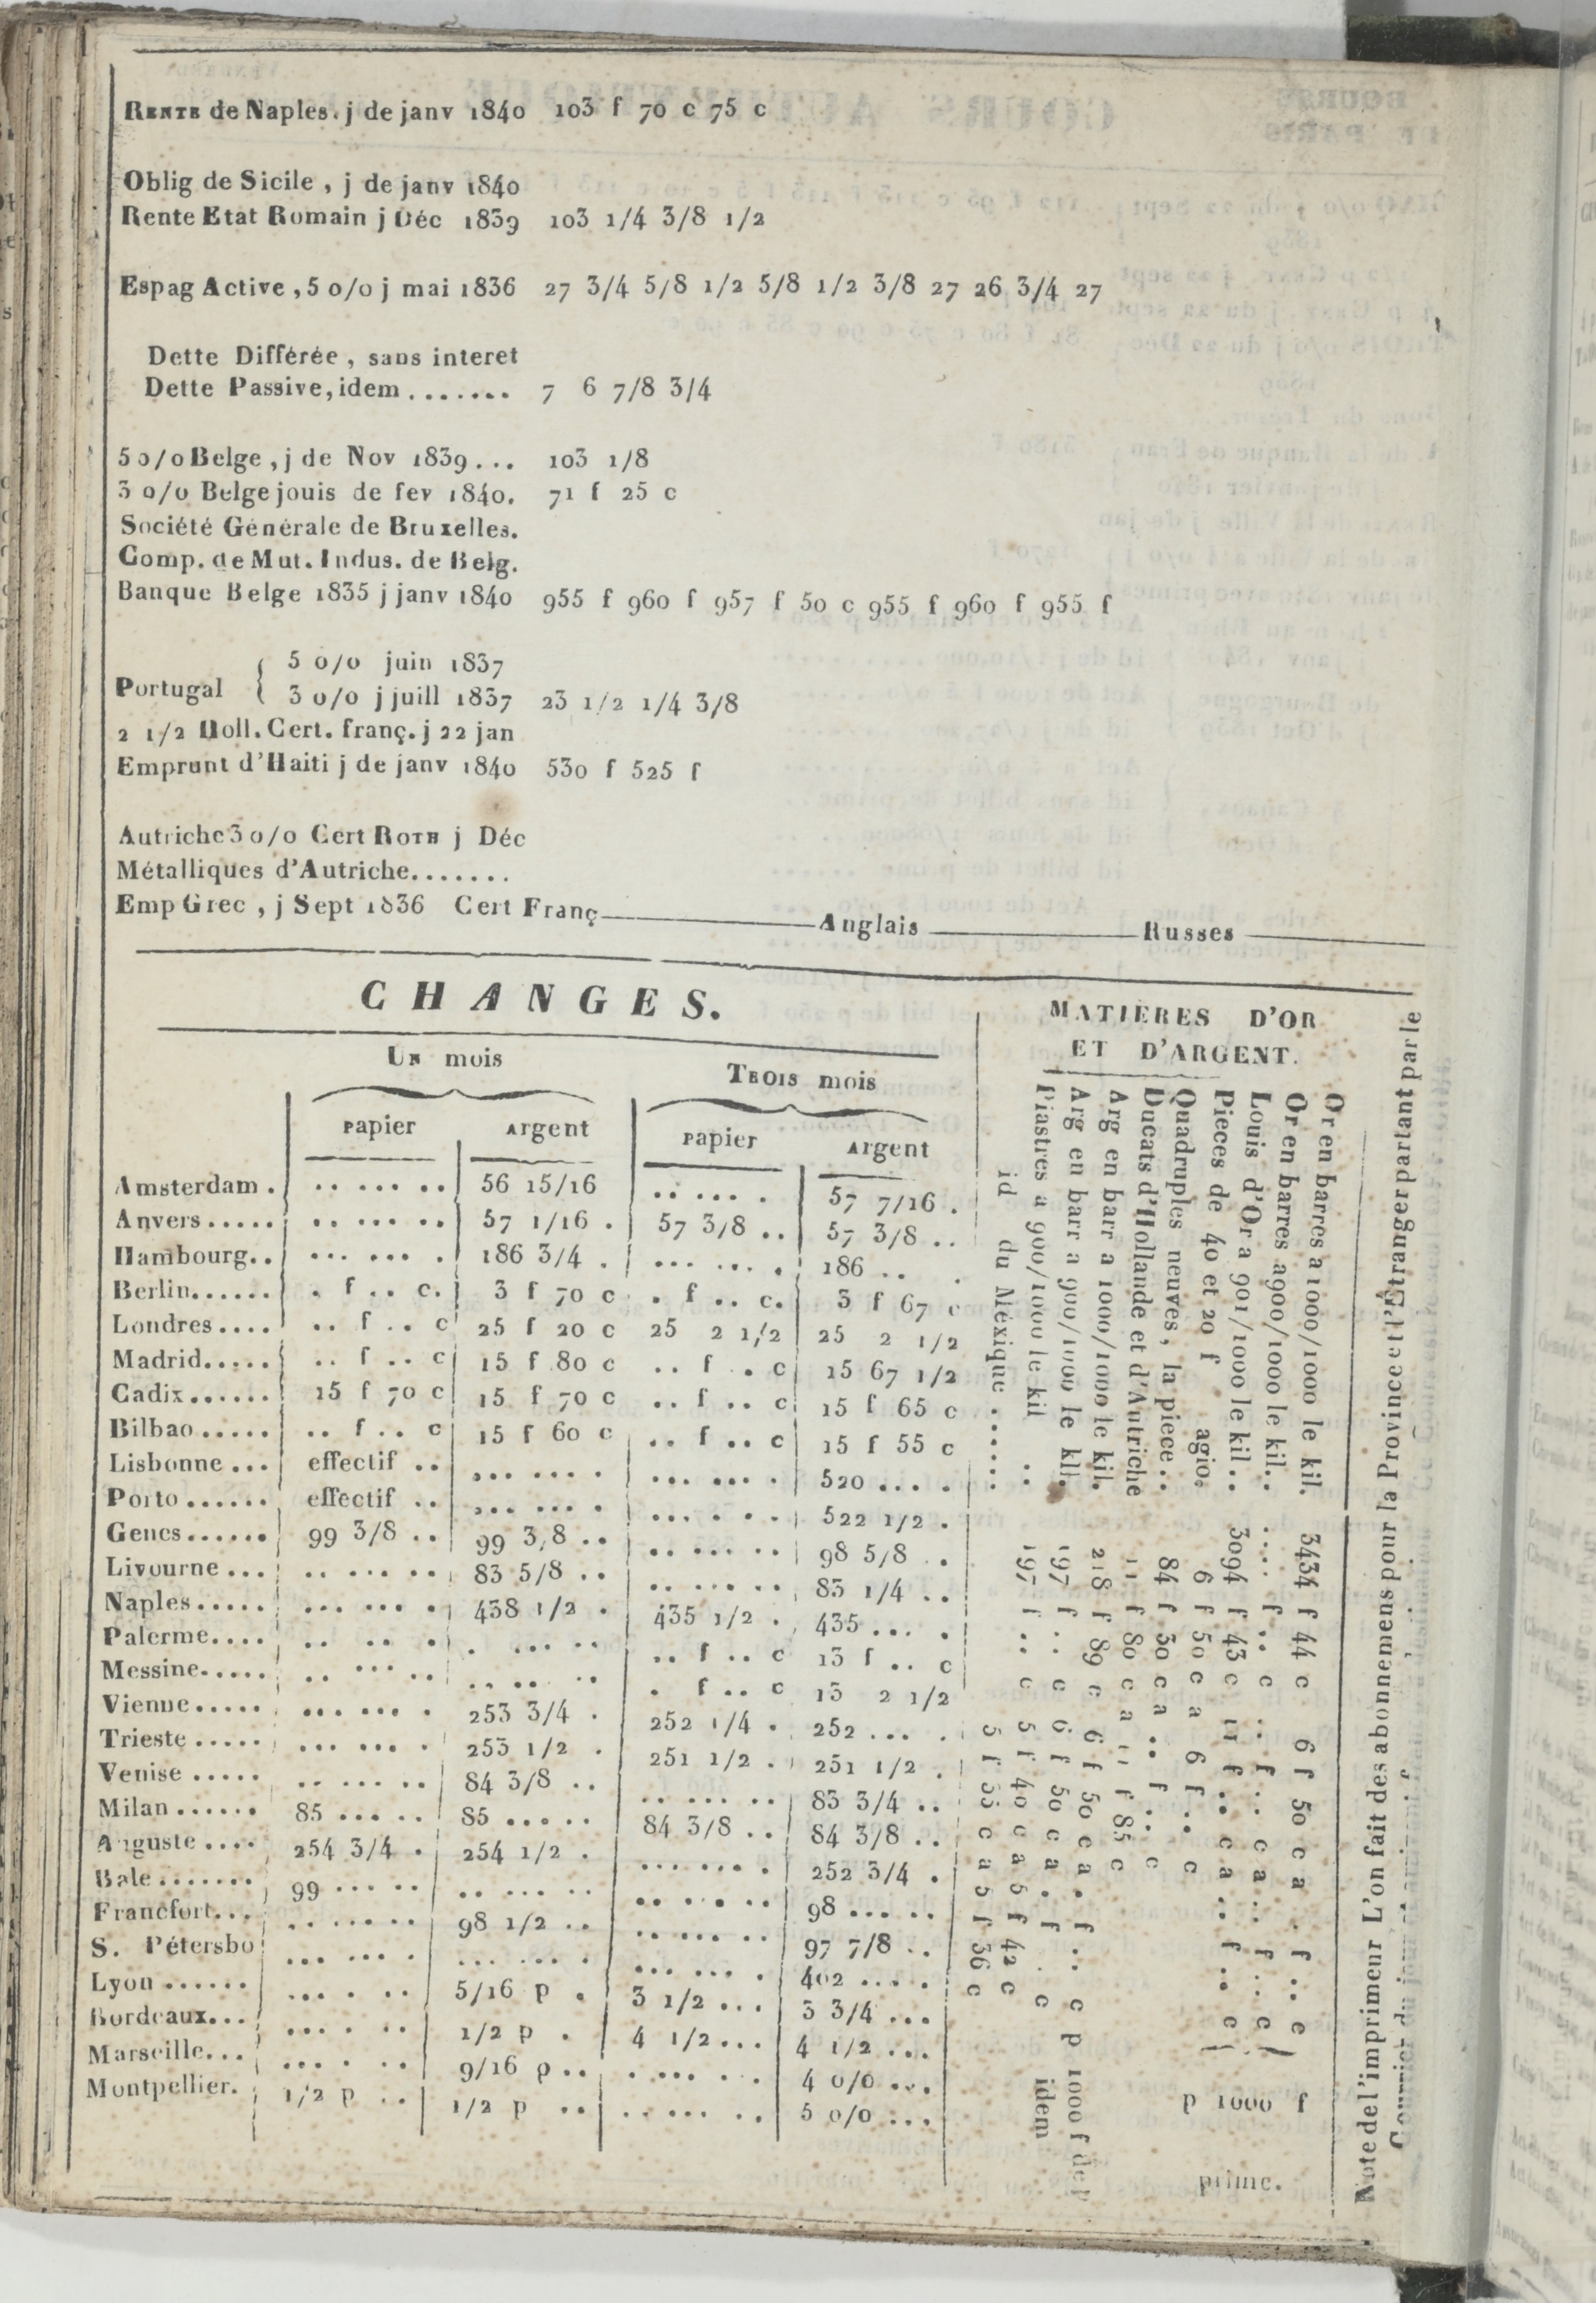 RENTE de Naples. j de janv 1840 103 f 70 c 75 c
Oblig de Sicile , j de janv 1840
Rente Etat Romain j Déc 1839 103 1/4 3/8 1/2
Espag Active , 5 o/o j mai 1836 27 3/4 5/8 1/2 5/8 1/2 3/8 27 26 3/4 27
Dette Différée , sans interet
Dette Passive, idem ....... 7 6 7/8 3/4
5 o/o Belge , j de Nov 1839... 103 1/8
3 o/o Belge jouis de fev 1840. 71 f 25 c
Société Générale de Bruxelles.
Comp. de Mut. Indus. de Belg.
Banque Belge 1835 j janv 1840 955 f 960 f 957 f 50 c 955 f 960 f 955 f
Portugal { 5 o/o juin 1837
3 o/o j juill 1837 23 1/2 1/4 3/8
2 1/2 Holl. Cert. franç. j 22 jan
Emprunt d'Haiti j de janv 1840 530 f 525 f
Autriche 3 o/o Cert ROTH j Déc
Métalliques d'Autriche.......
Emp Grec , j Sept 1836 Cert Franç Anglais Russes
CHANGES.
UN mois TROIS mois
PAPIER ARGENT PAPIER ARGENT
Amsterdam . .. ... .. 56 15/16 .. ... . 57 7/16 .
Anvers..... .. ... .. 57 1/16 . 57 3/8 .. 57 3/8 ..
Hambourg.. ... ... . 186 3/4 . ... ... . 186 .. .
Berlin...... . f .. c. 3 f 70 c . f .. c. 3 f 67 c
Londres.... .. f .. c 25 f 20 c 25 2 1/2 25 2 1/2
Madrid..... .. f .. c 15 f 80 c .. f . c 15 67 1/2
Cadix...... 15 f 70 c 15 f 70 c .. f .. c 15 f 65 c
Bilbao..... .. f .. c 15 f 60 c .. f .. c 15 f 55 c
Lisbonne... effectif .. ... ... . ... ... . 520 ... .
Porto...... effectif .. ... ... . ... . . . 522 1/2 .
Genes...... 99 3/8 .. 99 3/8 .. .. ... .. 98 5/8 ..
Livourne... .. ... .. 83 5/8 .. .. ... .. 83 1/4 ..
Naples..... ... ... . 438 1/2 . 435 1/2 . 435 ... .
Palerme.... .. .. . . ... .. .. f .. c 13 f .. c
Messine..... .. ... .. .. .. .. . f .. c 13 2 1/2
Vienne..... ... ... . 253 3/4 . 252 1/4 . 252 ... .
Trieste..... ... ... . 253 1/2 . 251 1/2 . 251 1/2 .
Venise..... .. ... .. 84 3/8 .. .. ... .. 83 3/4 ..
Milan...... 85 ... .. 85 ... .. 84 3/8 .. 84 3/8 ..
Auguste.... 254 3/4 . 254 1/2 . ... ... . 252 3/4 .
Bale....... 99 ... .. .. ... .. .. ... .. 98 ... ..
Francfort... .. ... .. 98 1/2 .. .. ... .. 97 7/8 ..
S. Pétersbo ... ... . ... ... . ... ... . 402 ... .
Lyon...... ... . .. 5/16 p . 3 1/2 ... 3 3/4 ...
Bordeaux... ... . .. 1/2 p . 4 1/2 ... 4 1/2 ...
Marseille... ... . .. 9/16 p .. . ... .. 4 o/o ...
Montpellier. 1/2 p .. 1/2 p .. .. ... .. 5 o/o ...
MATIERES D'OR
ET D'ARGENT.
Or en barres a 1000/1000 le kil. 3434 f 44 c 6 f 50 c a . f .. c
Or en barres a 900/1000 le kil.. .... f .. c .. f .. c a .. f .. c
Louis d'Or a 901/1000 le kil.. 3094 f 43 c 11 f .. c a .. f .. c
p 1000 f
prime.
Pieces de 40 et 20 f agio. 6 f 50 c a 6 f .. c
Quadruples neuves, la piece.. 84 f 30 c a .. f .. c
Ducats d'Hollande et d'Autriche 11 f 80 c a 11 f 85 c
Arg en barr a 1000/1000 le kil. 218 f 89 c 6 f 50 c a . f .. c p 1000 f de
Arg en barr a 900/1000 le kil. 197 f .. c 6 f 50 c a . f . c idem
Piastres a 900/1000 le kil .. 197 f .. c 5 f 40 c a 5 f 42 c
id du Méxique ...... 5 f 35 c a 5 f 36 c
Note de l'imprimeur L'on fait des abonnemens pour la Province et l'Étranger partant par le